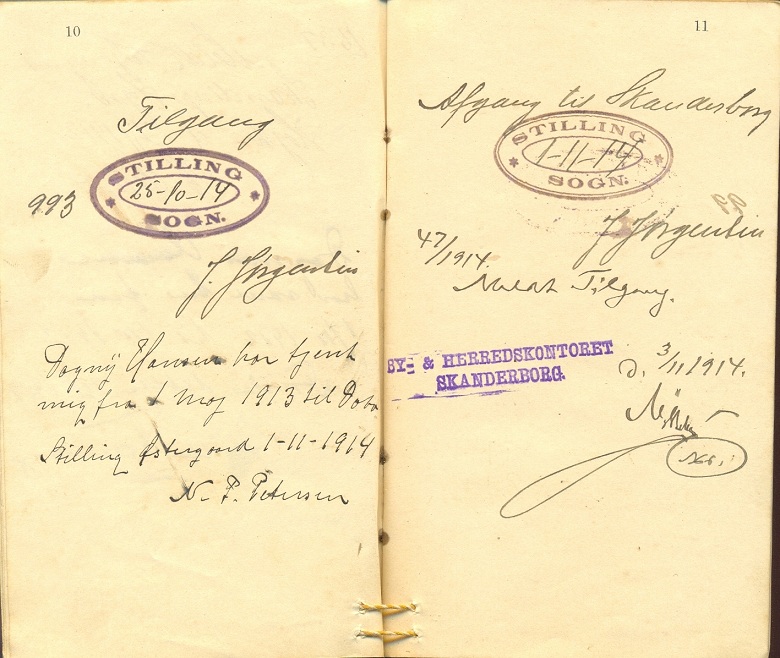 10
Tilgang
STILLING
25-10-14
SOGN.
993
J. Jørgensen
Dagny Hansen har tjent
mig fra 1 Maj 1913 til Dato
Stilling Østergaard 1-11-1914
N. P. Petersen
11
Afgang til Skanderborg
STILLING
1-11-14
SOGN.
J. Jørgensen
47/1914.
Meldt Tilgang.
BY- & HERREDSKONTORET
SKANDERBORG
D. 3/11 1914.